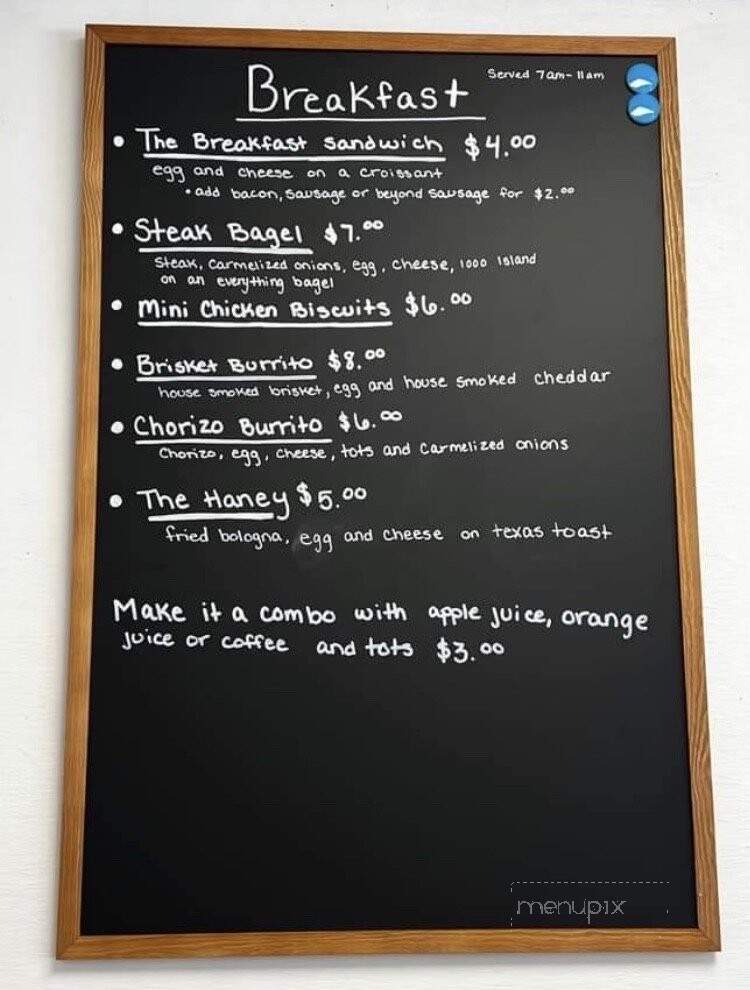 Breakfast Served 7am-11am
• The Breakfast Sandwich $4.00
egg and cheese on a croissant
• add bacon, sausage or beyond sausage for $2.00
• Steak Bagel $7.00
Steak, carmelized onions, egg, cheese, 1000 Island
on an everything bagel
• Mini Chicken Biscuits $6.00
• Brisket Burrito $8.00
house smoked brisket, egg and house smoked cheddar
• Chorizo Burrito $6.00
Chorizo, egg, cheese, tots and carmelized onions
• The Haney $5.00
fried bologna, egg and cheese on texas toast
Make it a combo with apple juice, orange
juice or coffee and tots $3.00
menupix